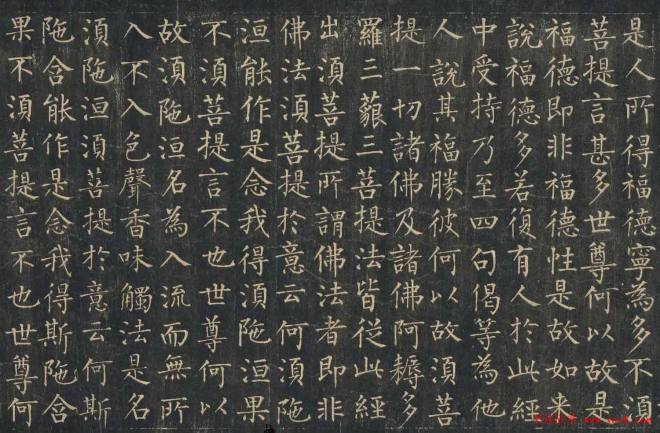 是人所得福德寧為多不湏
菩提言甚多世尊何以故是
福德即非福德性是故如来
說福德多若復有人於此經
中受持乃至四句偈等為他
人說其福勝彼何以故湏菩
提一切諸佛及諸佛阿耨多
羅三藐三菩提法皆從此經
出湏菩提所謂佛法者即非
佛法湏菩提於意云何湏陁
洹能作是念我得湏陁洹果
不湏菩提言不也世尊何以
故湏陁洹名為入流而無所
入不入色聲香味觸法是名
湏陁洹湏菩提於意云何斯
陁含能作是念我得斯陁含
果不湏菩提言不也世尊何